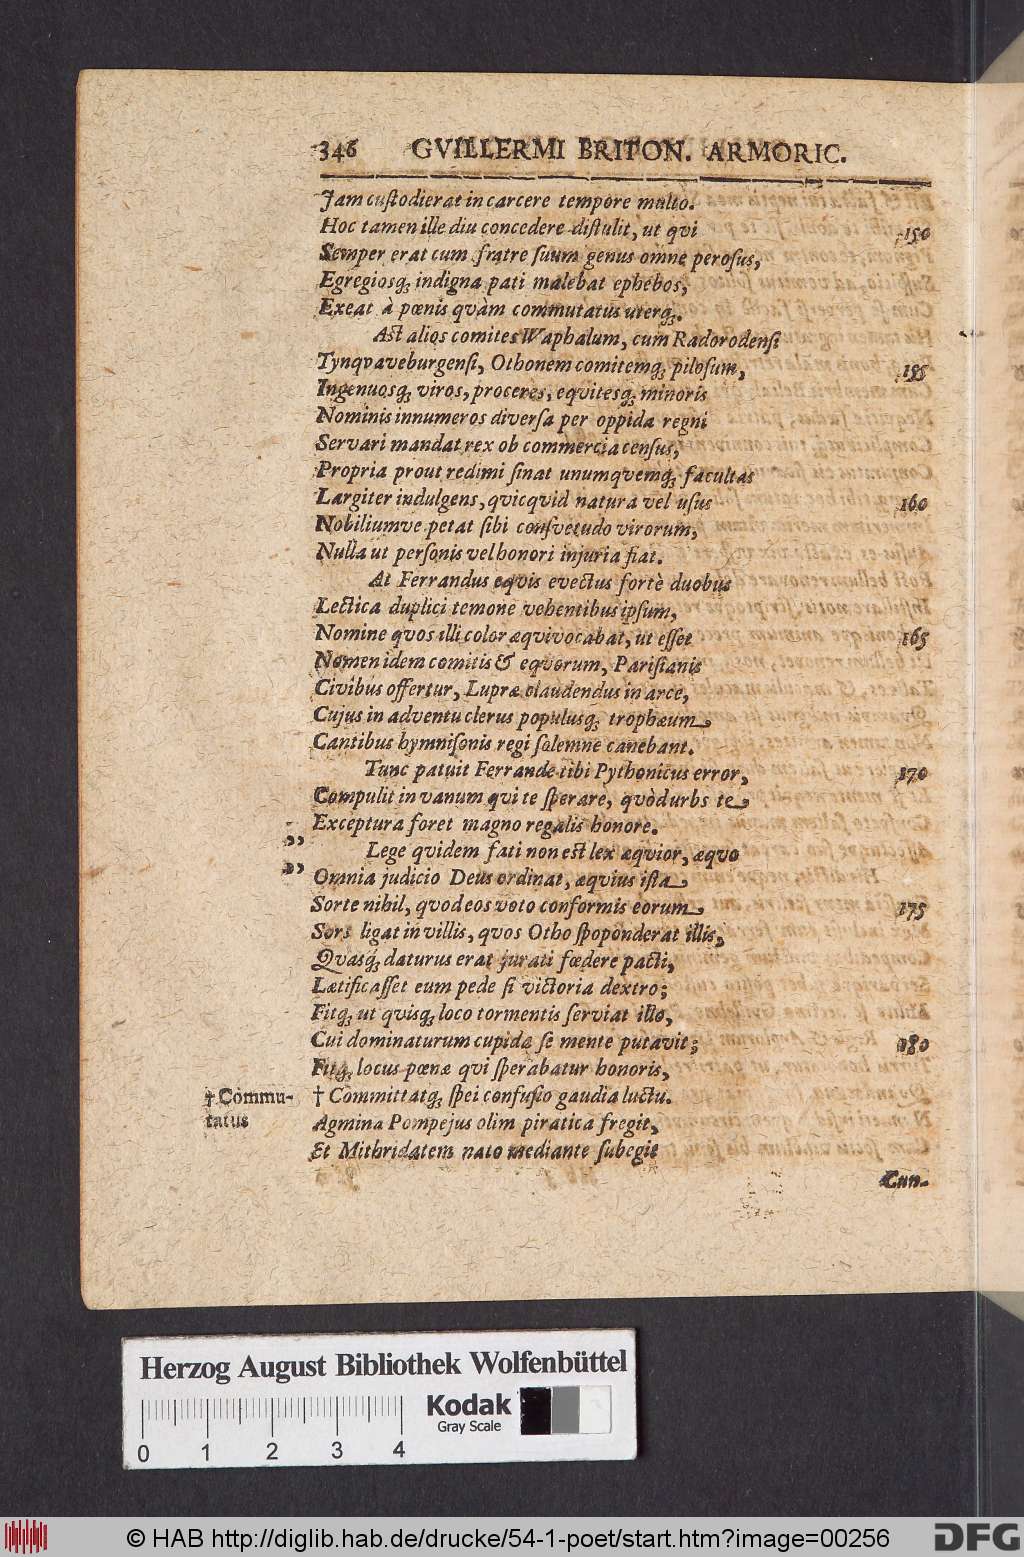 346 GVILLERMI BRITON. ARMORIC.
Jam custodierat in carcere tempore multo.
Hoc tamen ille diu concedere distulit, ut qvi 150
Semper erat cum fratre suum genus omne perosus,
Egregiosq; indigna pati malebat ephebos,
Exeat à pœnis quàm commutatus uterq;.
Ast alios comites Waphalum, cum Radorodensi
Tynqvaveburgensi, Othonem comitemq; pilosum, 155
Ingenuosq; viros, proceres, eqvitesq; minoris
Nominis innumeros diversa per oppida regni
Servari mandat rex ob commercia census,
Propria prout redimi sinat unumqvemq; facultas
Largiter indulgens, qvicqvid natura vel usus 160
Nobiliumve petat sibi consvetudo virorum,
Nulla ut personis vel honori injuria fiat.
At Ferrandus eqvis evectus fortè duobus
Lectica duplici temone vehentibus ipsum,
Nomine qvos illi color æqvivocabat, ut esset 165
Nomen idem comitis & eqvorum, Parisianis
Civibus offertur, Lupræ claudendus in arce,
Cujus in adventu clerus populusq; trophæum
Cantibus hymnisonis regi solemne canebant.
Tunc patuit Ferrande tibi Pythonicus error, 170
Compulit in vanum qvi te sperare, qvòd urbs te
Exceptura foret magno regalis honore.
„ Lege qvidem fati non est lex æqvior, æqvo
„ Omnia judicio Deus ordinat, æqvius ista
Sorte nihil, qvod eos voto conformis eorum 175
Sors ligat in villis, qvos Otho spoponderat illis,
Qvasq; daturus erat jurati fœdere pacti,
Lætificasset eum pede si victoria dextro;
Fitq; ut qvisq; loco tormentis serviat illo,
Cui dominaturum cupida se mente putavit; 180
Fitq; locus pœnæ qvi sperabatur honoris,
† Commu- † Committatq; spei confusio gaudia luctu.
tatus Agmina Pompejus olim piratica fregit,
Et Mithridatem nato mediante subegit
Cun-
Herzog August Bibliothek Wolfenbüttel
Kodak
Gray Scale
0 1 2 3 4
© HAB http://diglib.hab.de/drucke/54-1-poet/start.htm?image=00256
DFG